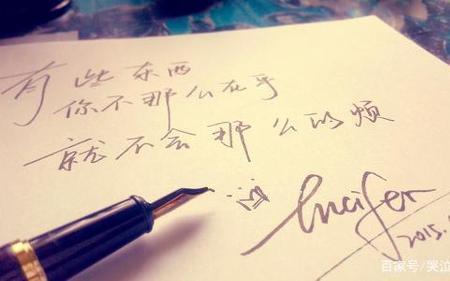 有些东西
你不那么在乎
就不会那么的烦
Lucifer
2015.
百家号/哭泣